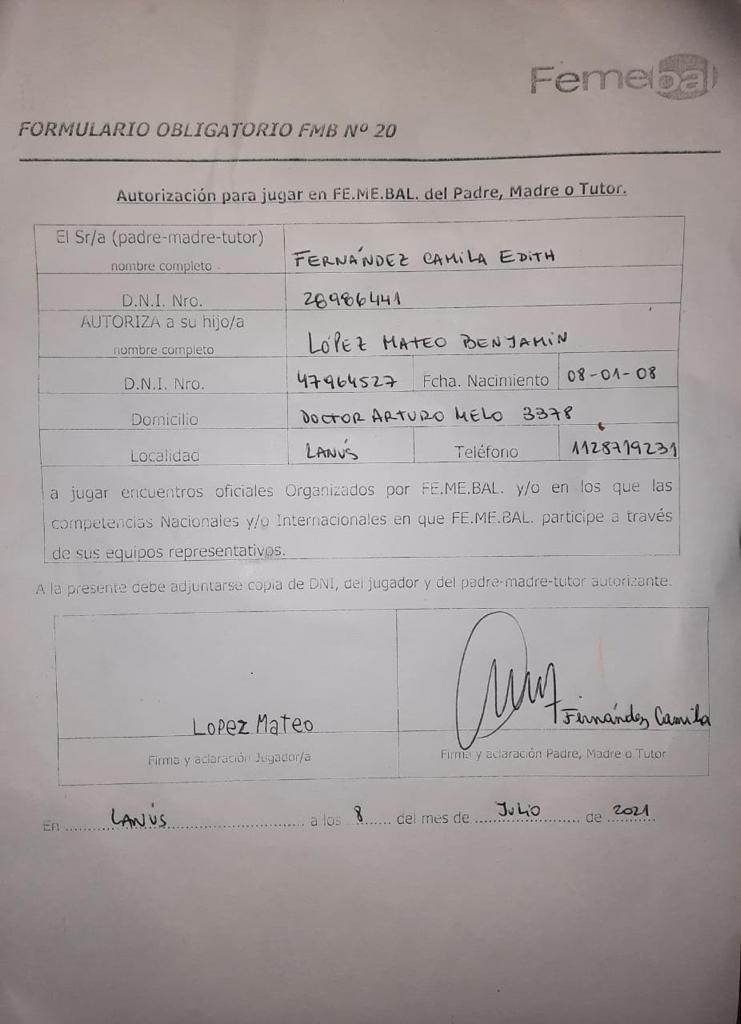 Femebal
FORMULARIO OBLIGATORIO FMB Nº 20
Autorización para jugar en FE.ME.BAL. del Padre, Madre o Tutor.
El Sr/a (padre-madre-tutor)
nombre completo
FERNÁNDEZ CAMILA EDITH
D.N.I. Nro.
28986441
AUTORIZA a su hijo/a
nombre completo
LÓPEZ MATEO BENJAMIN
D.N.I. Nro.
47964527
Fcha. Nacimiento
08-01-08
Domicilio
DOCTOR ARTURO MELO 3378
Localidad
LANÚS
Teléfono
1128719231
a jugar encuentros oficiales Organizados por FE.ME.BAL. y/o en los que las
competencias Nacionales y/o Internacionales en que FE.ME.BAL. participe a través
de sus equipos representativos.
A la presente debe adjuntarse copia de DNI, del jugador y del padre-madre-tutor autorizante.
Lopez Mateo
Firma y aclaración Jugador/a
Fernández Camila
Firma y aclaración Padre, Madre o Tutor
En LANÚS a los 8 del mes de JULIO de 2021